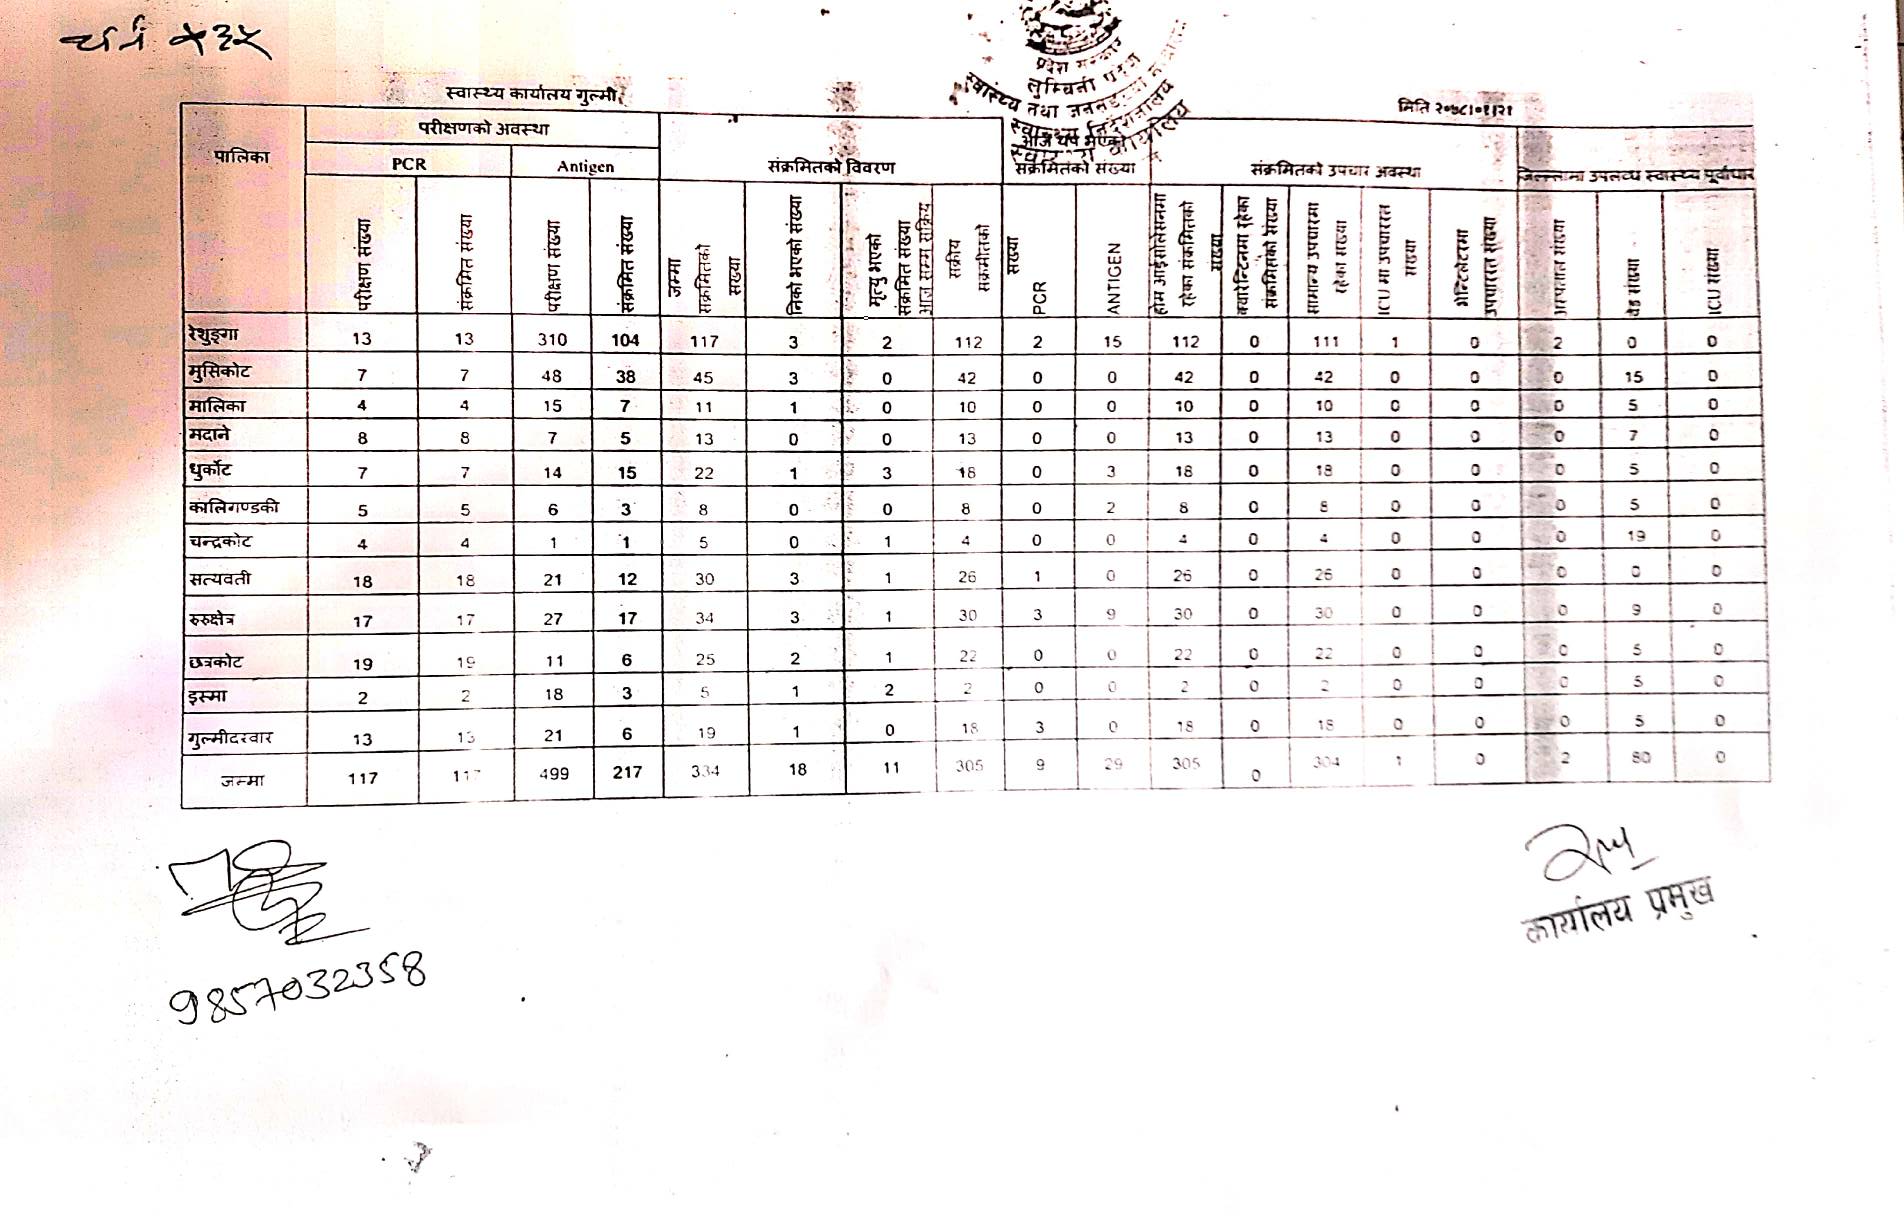 ५३५
प्रदेश सरकार
लुम्बिनी प्रदेश
स्वास्थ्य तथा
स्वास्थ्य निर्देशनालय
स्वास्थ्य कार्यालय
स्वास्थ्य कार्यालय गुल्मी
मिति २०७८।०१।२१
पालिका परीक्षणको अवस्था संक्रमितको विवरण आज थप भएको संक्रमितको संख्या संक्रमितको उपचार अवस्था जिल्लामा उपलव्ध स्वास्थ्य पूर्वाधार
PCR Antigen
परीक्षण संख्या संक्रमित संख्या परीक्षण संख्या संक्रमित संख्या जम्मा संक्रमितको संख्या निको भएको संख्या मृत्यु भएको संक्रमित संख्या आज सम्म सक्रिय सक्रीय संक्रमीतको संख्या PCR ANTIGEN होम आईसोलेसनमा रहेका संक्रमितको संख्या क्वारेन्टिनमा रहेका संक्रमितको संख्या सामान्य उपचारमा रहेका संख्या ICU मा उपचाररत संख्या भेन्टिलेटरमा उपचाररत संख्या अस्पताल संख्या वेड संख्या ICU संख्या
रेशुङ्गा 13 13 310 104 117 3 2 112 2 15 112 0 111 1 0 2 0 0
मुसिकोट 7 7 48 38 45 3 0 42 0 0 42 0 42 0 0 0 15 0
मालिका 4 4 15 7 11 1 0 10 0 0 10 0 10 0 0 0 5 0
मदाने 8 8 7 5 13 0 0 13 0 0 13 0 13 0 0 0 7 0
धुर्कोट 7 7 14 15 22 1 3 18 0 3 18 0 18 0 0 0 5 0
कालिगण्डकी 5 5 6 3 8 0 0 8 0 2 8 0 8 0 0 0 5 0
चन्द्रकोट 4 4 1 1 5 0 1 4 0 0 4 0 4 0 0 0 19 0
सत्यवती 18 18 21 12 30 3 1 26 1 0 26 0 26 0 0 0 0 0
रुरुक्षेत्र 17 17 27 17 34 3 1 30 3 9 30 0 30 0 0 0 9 0
छत्रकोट 19 19 11 6 25 2 1 22 0 0 22 0 22 0 0 0 5 0
इस्मा 2 2 18 3 5 1 2 2 0 0 2 0 2 0 0 0 5 0
गुल्मीदरवार 13 13 21 6 19 1 0 18 3 0 18 0 18 0 0 0 5 0
जम्मा 117 117 499 217 334 18 11 305 9 29 305 0 304 1 0 2 80 0
9857032358
कार्यालय प्रमुख